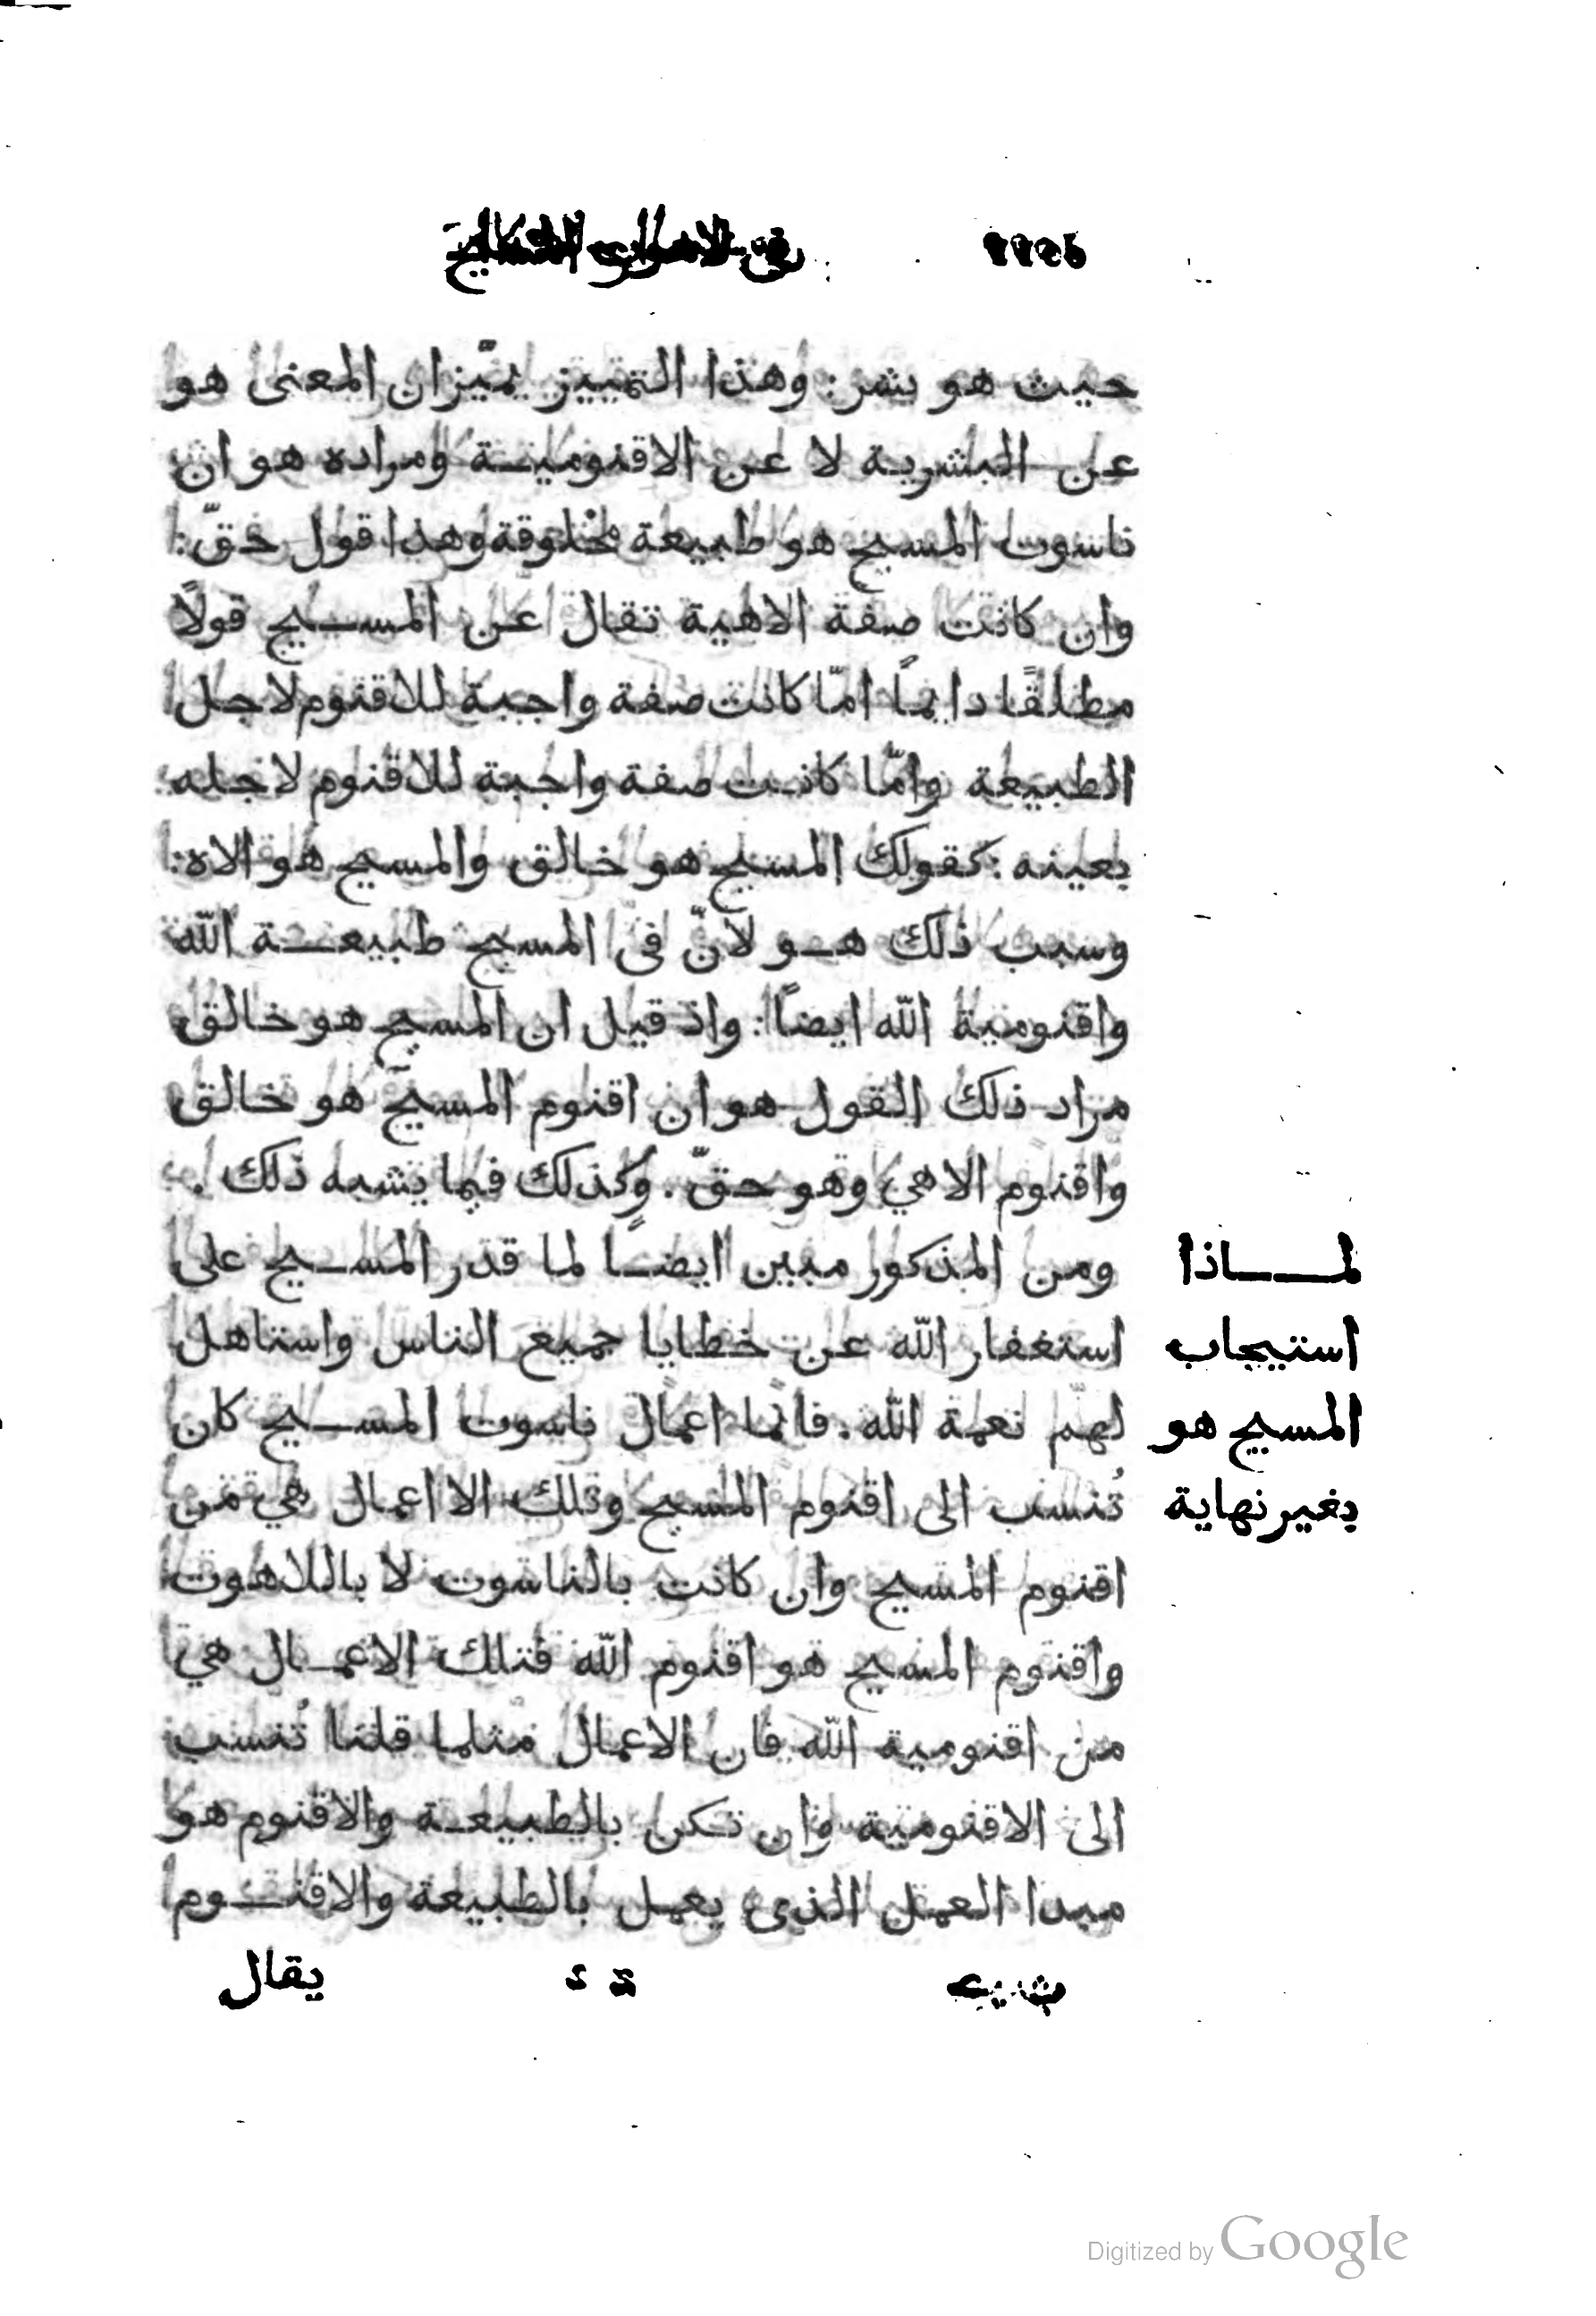 حيث هو بشر: وهذا التمييز يميّز ان المعنى هو
عن البشرية لا عن الاقنومية ومراده هو ان
ناسوت المسيح هو طبيعة مخلوقة وهذا قول حقّ:
وان كانت صفة الاهية تقال عن المسيح قولاً
مطلقًا دايمًا امّا كانت صفة واجبة للاقنوم لاجل
الطبيعة وامّا كانت صفة واجبة للاقنوم لاجله
بعينه: كقولك المسيح هو خالق والمسيح هو الاه:
وسبب ذلك هو لانّ فى المسيح طبيعة الله
واقنومية الله ايضًا: واذ قيل ان المسيح هو خالق
مراد ذلك القول هو ان اقنوم المسيح هو خالق
واقنوم الاهي وهو حقّ. وكذلك فيما يشبه ذلك.
لماذا
استيجاب
المسيح هو
بغير نهاية
ومن المذكور مبين ايضًا لما قدر المسيح على
استغفار الله عن خطايا جميع الناس واستاهل
لهم نعمة الله. فانّما اعمال ناسوت المسيح كان
تُنسب الى اقنوم المسيح وتلك الااعمال هي من
اقنوم المسيح وان كانت بالناسوت لا باللاهوت
واقنوم المسيح هو اقنوم الله فتلك الاعمال هي
من اقنومية الله فان الاعمال مثلما قلنا تُنسب
الى الاقنومية وان تكن بالطبيعة والاقنوم هو
مبدا العمل الذى يعمل بالطبيعة والاقنوم
يقال
Digitized by Google